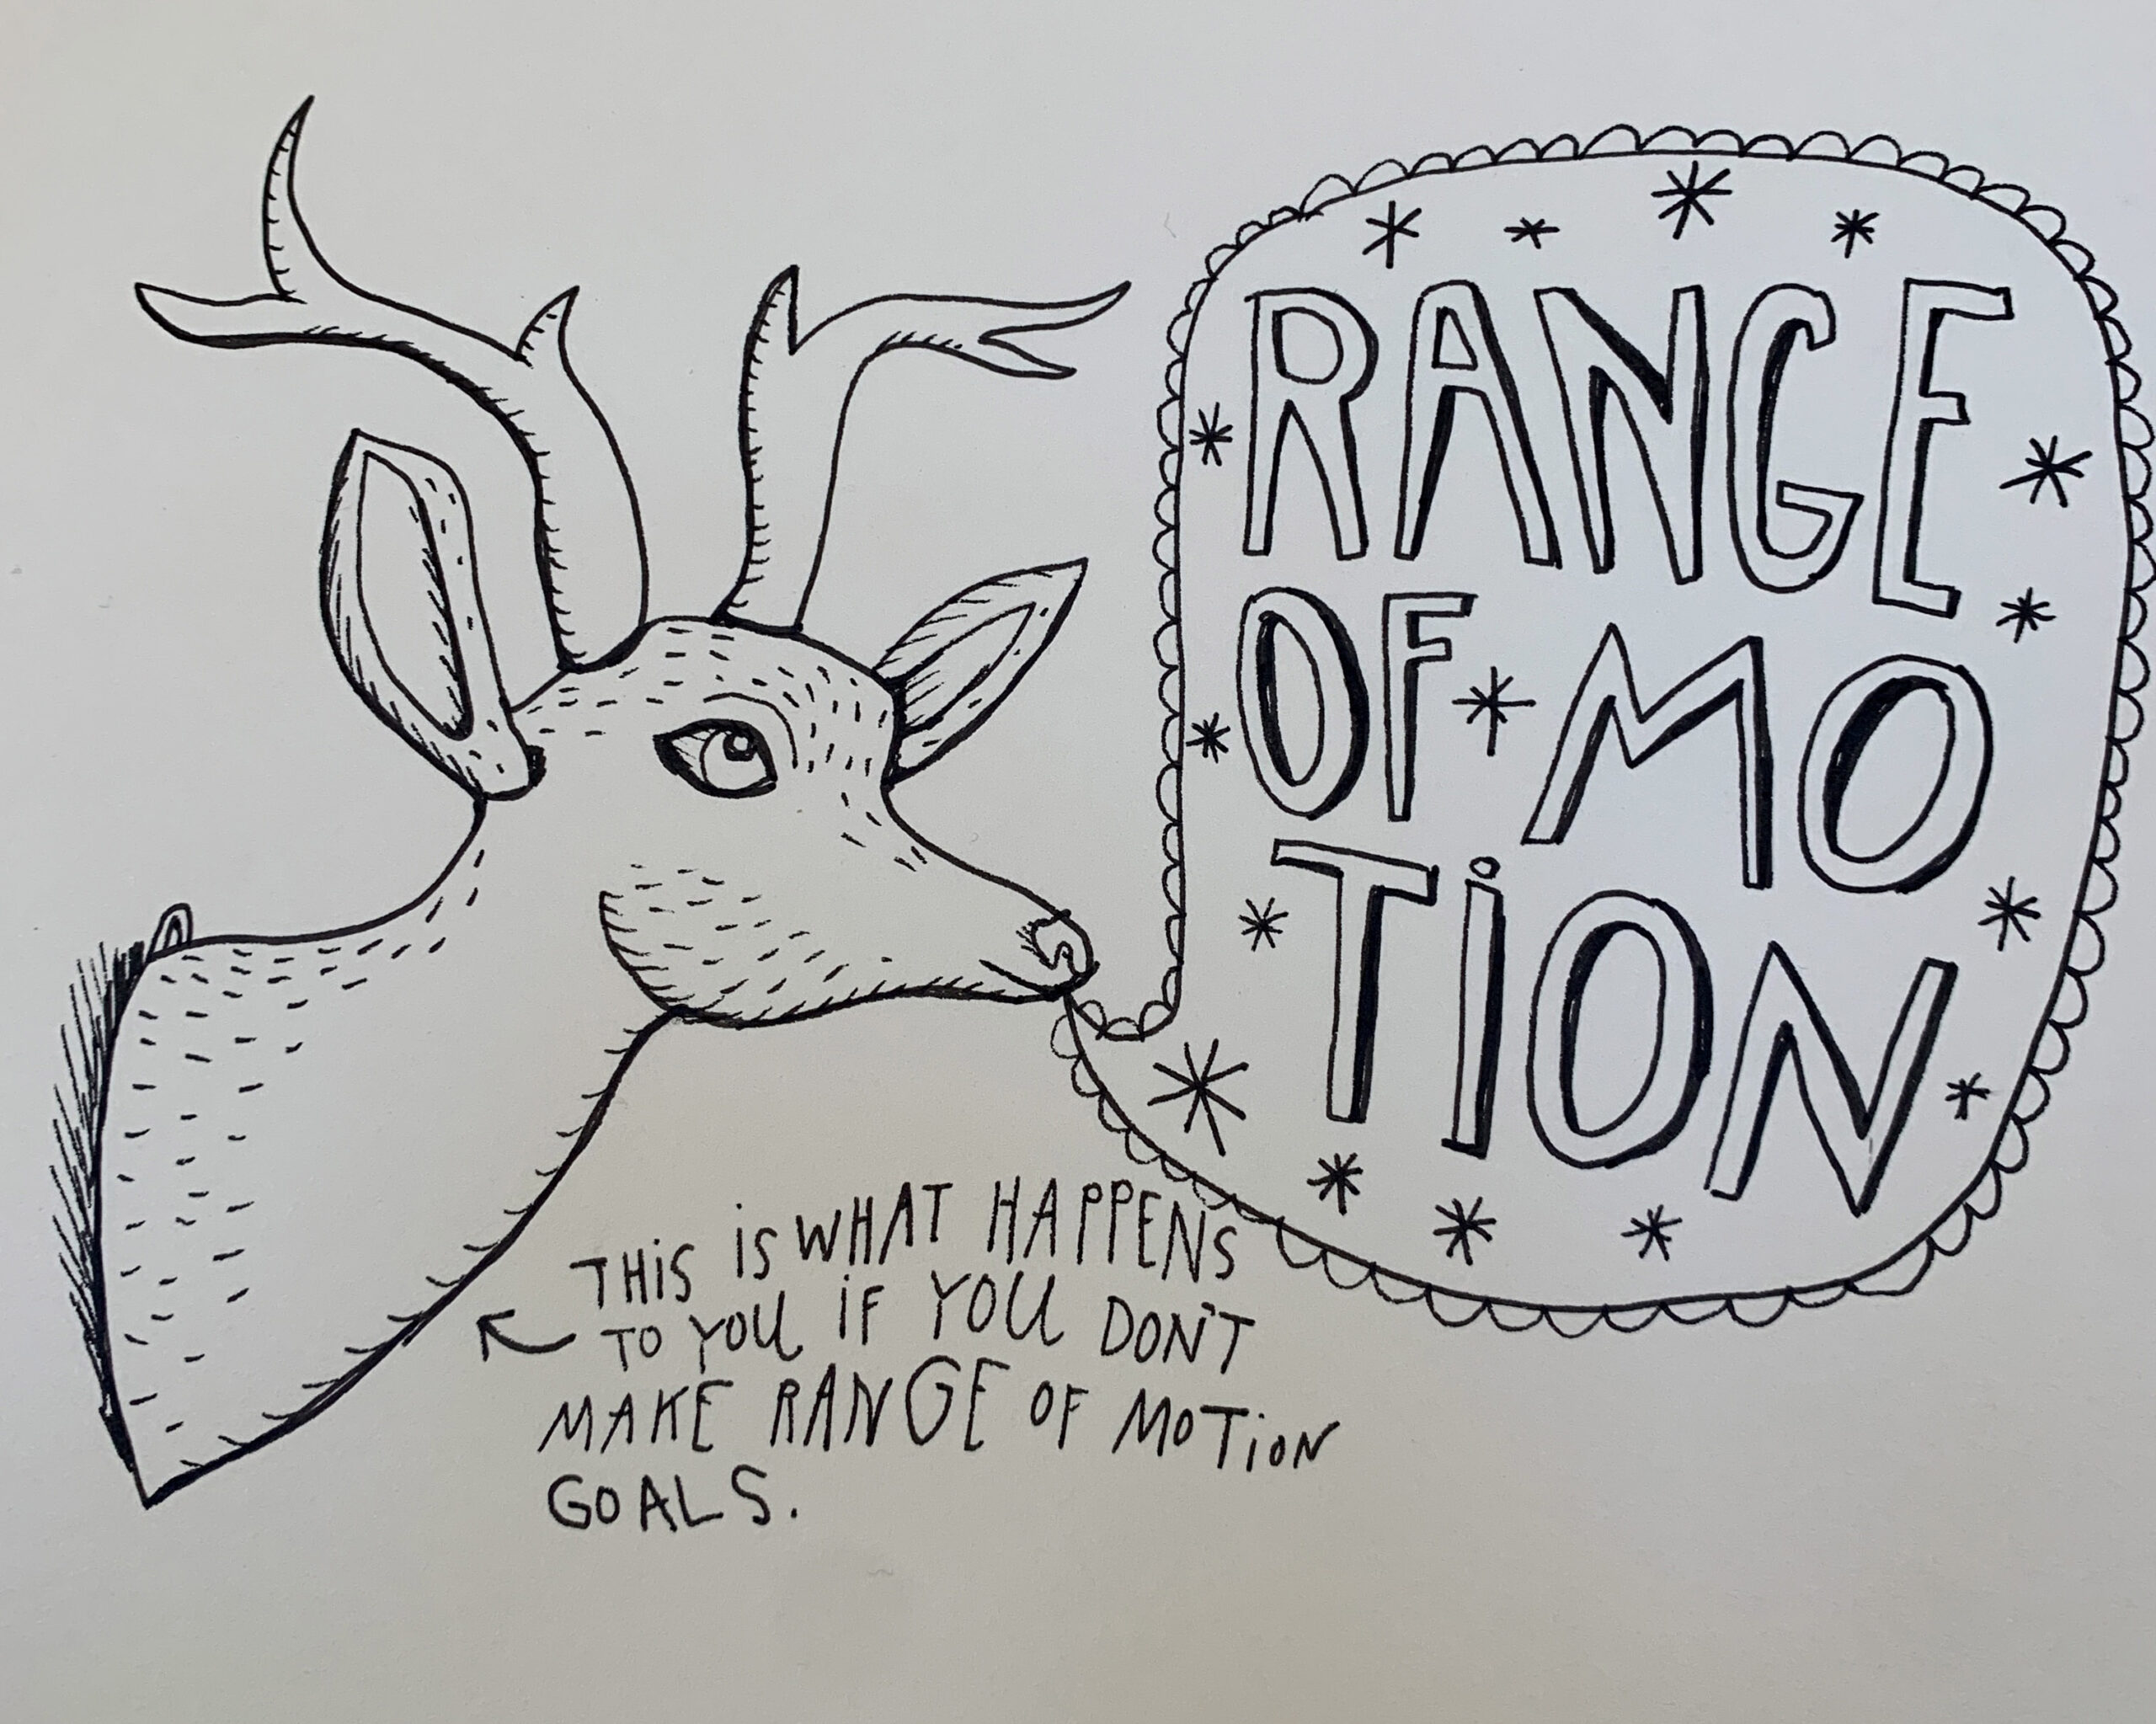 RANGE
OF MO
TiON
THiS iS WHAT HAPPENS
TO YOU iF YOU DON'T
MAKE RANGE OF MOTiON
GOALS.